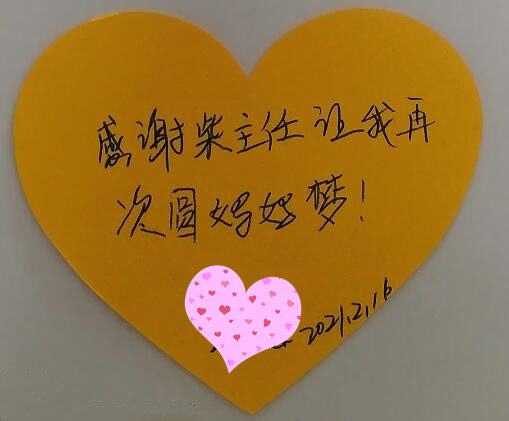 感谢柴主任让我再
次圆妈妈梦!
2021.2.16